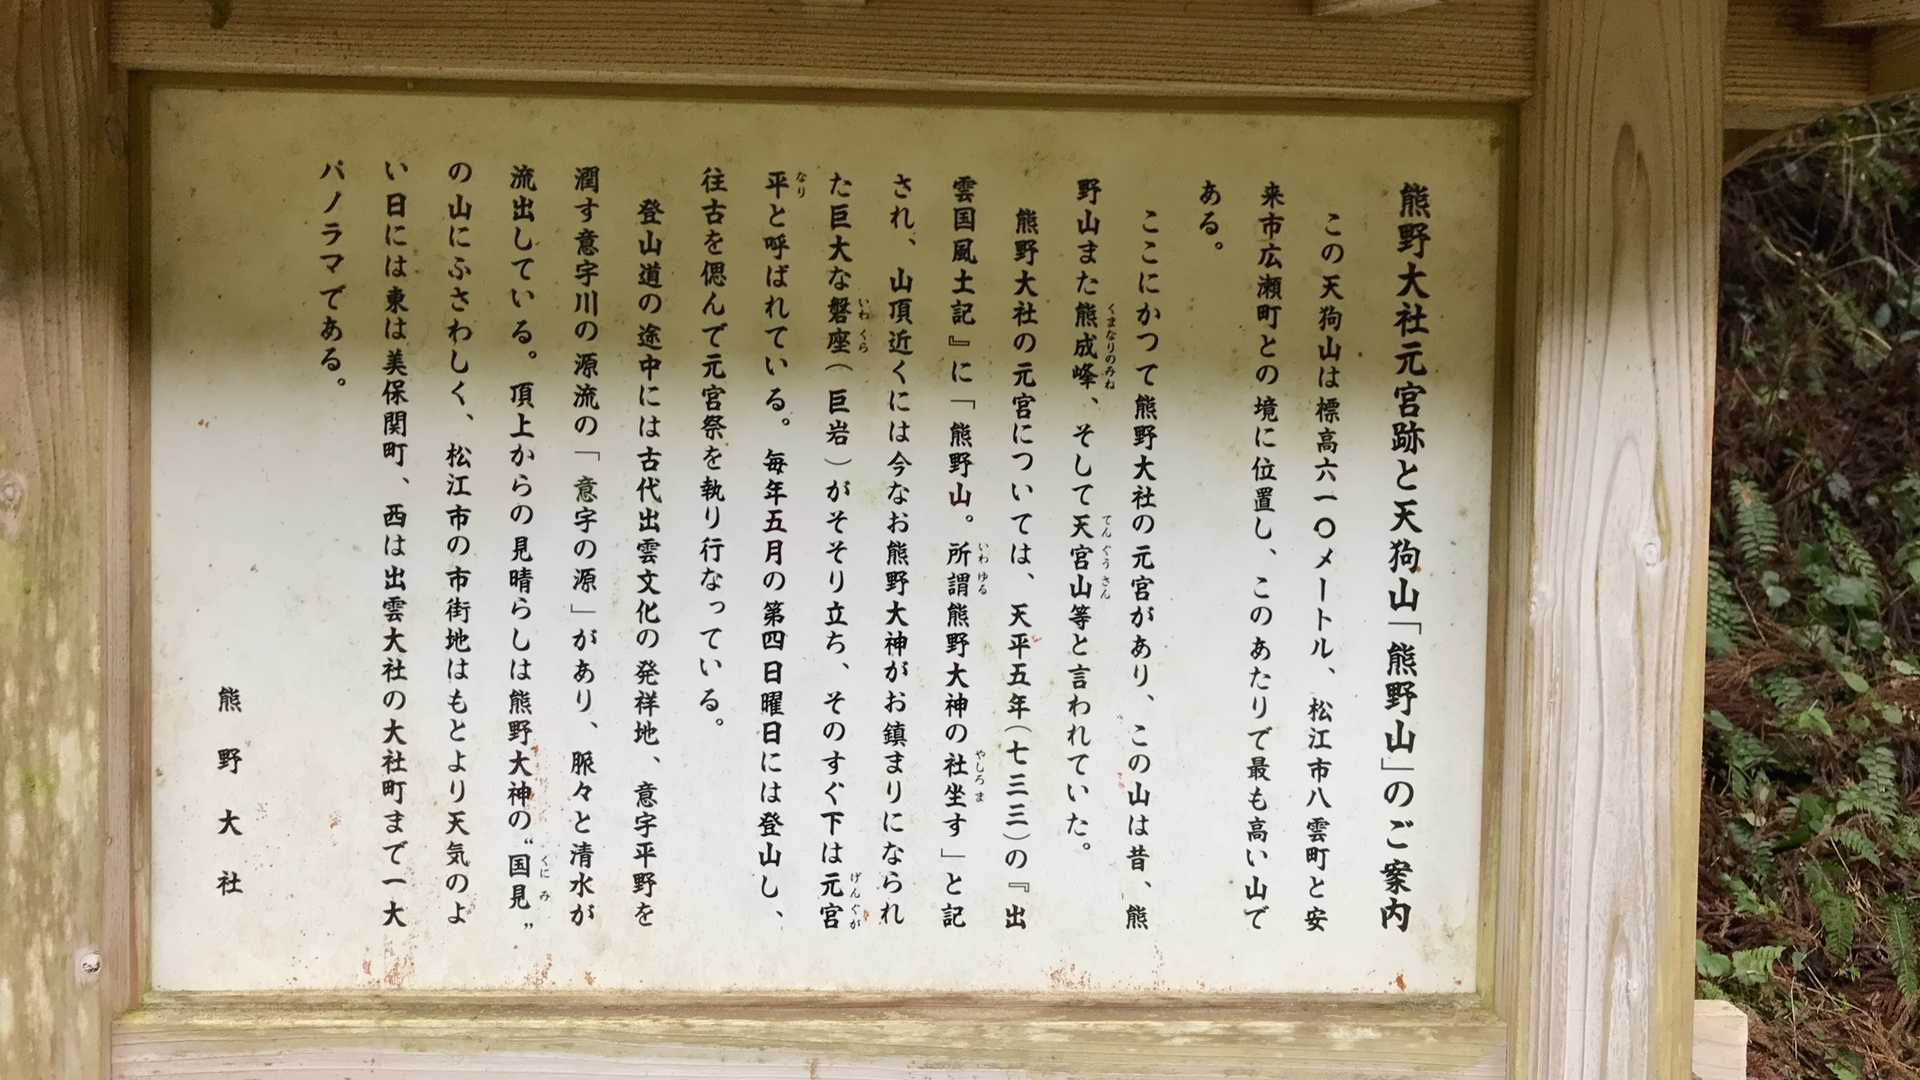 熊野大社元宮跡と天狗山「熊野山」のご案内
この天狗山は標高六一〇メートル、松江市八雲町と安
来市広瀬町との境に位置し、このあたりで最も高い山で
ある。
ここにかつて熊野大社の元宮があり、この山は昔、熊
野山また熊成峰、そして天宮山等と言われていた。
くまなりのみね
てんぐうさん
熊野大社の元宮については、天平五年(七三三)の『出
雲国風土記』に「熊野山。所謂熊野大神の社坐す」と記
いわゆる
やしろま
され、山頂近くには今なお熊野大神がお鎮まりになられ
た巨大な磐座(巨岩)がそそり立ち、そのすぐ下は元宮
いわくら
げんぐが
平と呼ばれている。毎年五月の第四日曜日には登山し、
なり
往古を偲んで元宮祭を執り行なっている。
登山道の途中には古代出雲文化の発祥地、意宇平野を
潤す意宇川の源流の「意宇の源」があり、脈々と清水が
流出している。頂上からの見晴らしは熊野大神の〝国見〟
くにみ
の山にふさわしく、松江市の市街地はもとより天気のよ
い日には東は美保関町、西は出雲大社の大社町まで一大
パノラマである。
熊野大社